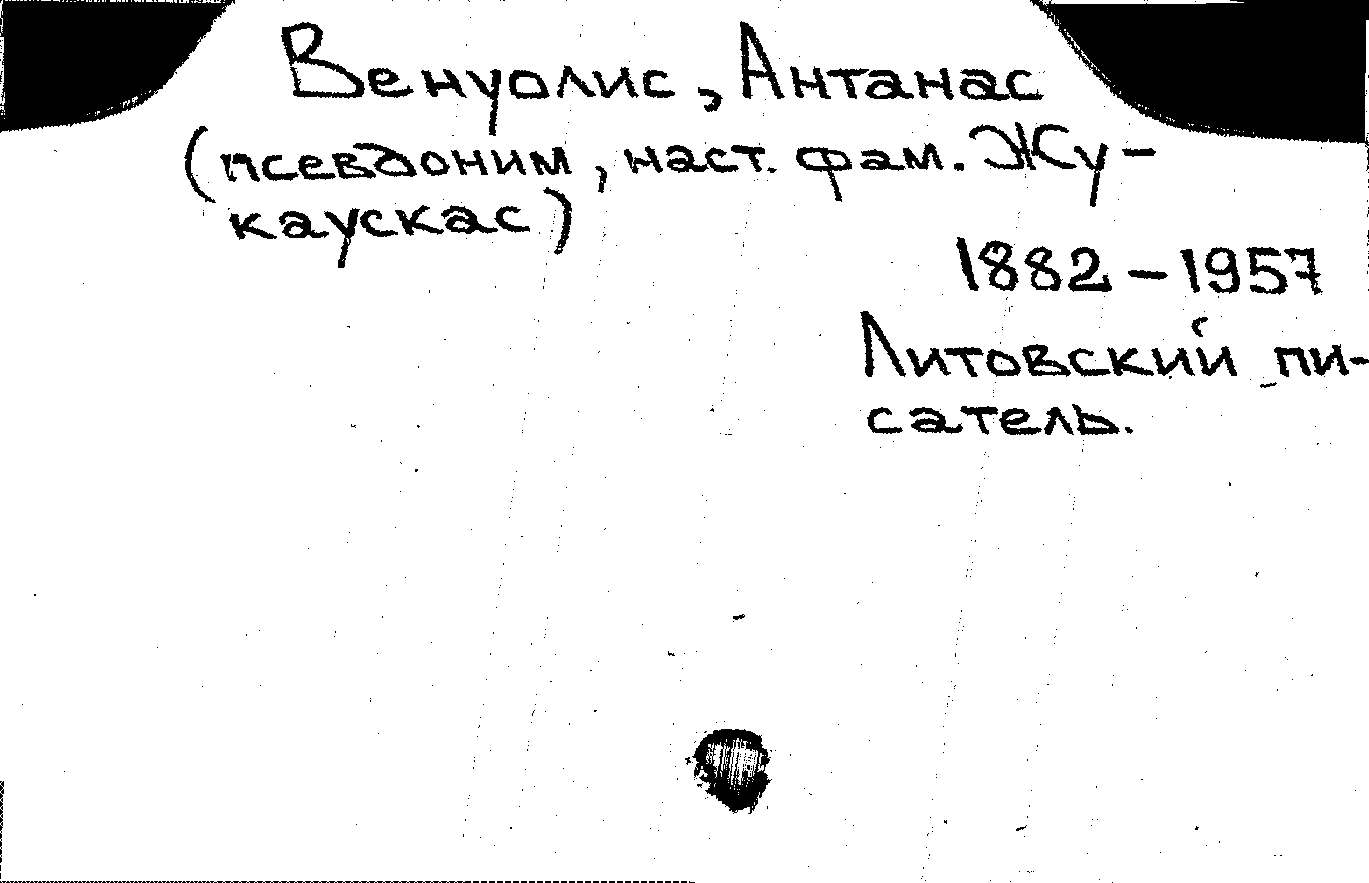 Венуолис, Антанас
(псевдоним, наст. фам. Жу-
каускас)
1882 – 1957
Литовский пи-
сатель.